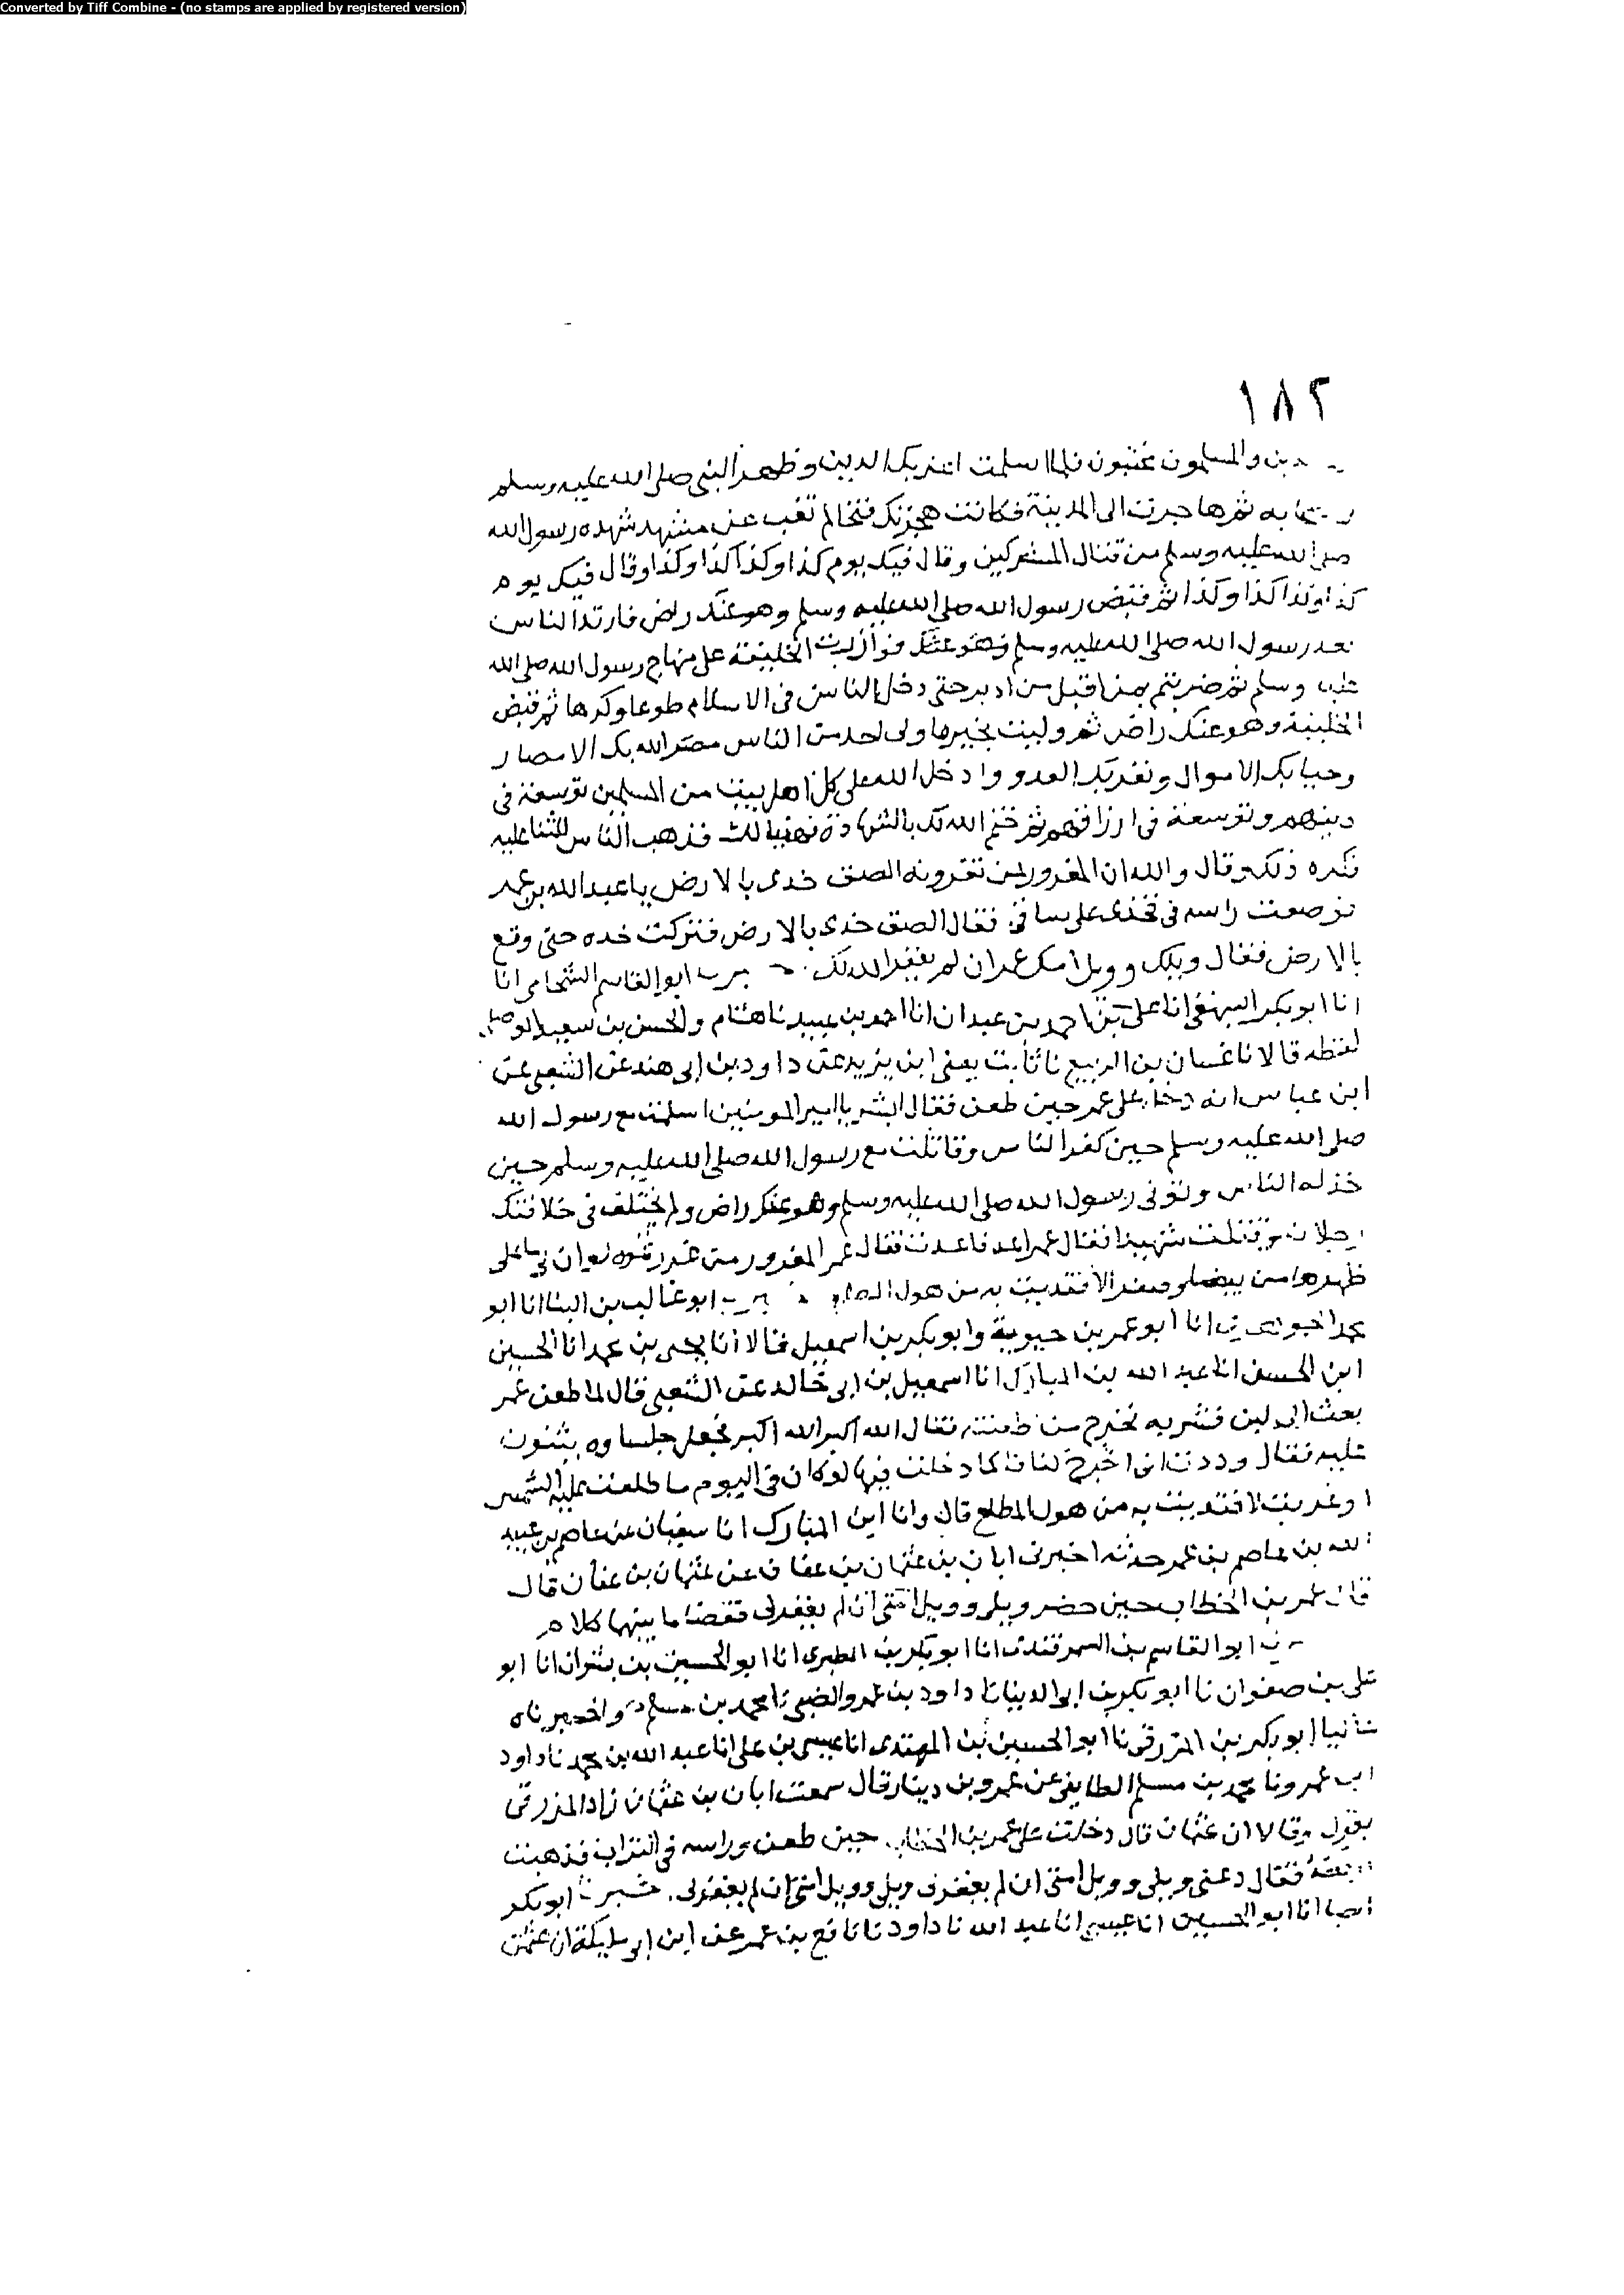 Converted by Tiff Combine - (no stamps are applied by registered version)
١٨٢
والمسلمون مختبون فلما اسلمت اعز بك الدين وظهر النبى صلى الله عليه وسلم
به ثم هاجرت الى المدينة فكانت هجرتك فتحا لم تغب عن مشهد شهده رسول الله
صلى الله عليه وسلم من قتال المشركين وقال فيك يوم كذا وكذا كذا وكذا وقال فيك يوم
كذا وكذا كذا وكذا ثم قبض رسول الله صلى الله عليه وسلم وهو عنك راض فارتد الناس
بعد رسول الله صلى الله عليه وسلم فوازرت الخليفة على منهاج رسول الله صلى الله
عليه وسلم ثم ضربتم بمن اقبل من ادبر حتى دخل الناس فى الاسلام طوعا وكرها ثم قبض
الخليفة وهو عنك راض ثم وليت بخير ما ولى احد من الناس مصر الله بك الامصار
وجبا بك الاموال ونفى بك العدو وادخل الله على كل اهل بيت من المسلمين توسعة فى
دينهم وتوسعة فى ارزاقهم ثم ختم الله لك بالشهادة فهنيا لك فذهب الناس للثنا عليه
فكره ذلك وقال والله ان المغرور لمن تغرونه الصق خدى بالارض يا عبد الله بن عمر
فوضعت راسه فى فخذى على ساقى فقال الصق خدى بالارض فتركت خده حتى وقع
بالارض فقال ويلك وويل امك عمر ان لم يغفر الله لك ابو القاسم الشحامى انا
انا ابو بكر البيهقى انا على بن احمد بن عبدان انا احمد بن عبيد نا هشام والحسن بن سعيد
لفظه قالا نا غسان بن الربيع نا ثابت يعنى ابن يزيد عن داود بن ابى هند عن الشعبى عن
ابن عباس انه دخل على عمر حين طعن فقال ابشر يا امير المومنين اسلمت مع رسول الله
صلى الله عليه وسلم حين كفر الناس وقاتلت مع رسول الله صلى الله عليه وسلم حين
خذله الناس وتوفى رسول الله صلى الله عليه وسلم وهو عنك راض ولم يختلف فى خلافتك
رجلان وقتلت شهيدا فقال عمر اعد فاعدت فقال عمر المغرور من غررتموه لو ان لى ما على
ظهرها من بيضا وصفرا لافتديت به من هول ابو غالب بن البنا انا ابو
محمد الجوهرى انا ابو عمر بن حيوية وابو بكر بن اسمعيل قالا انا يحيى بن محمد انا الحسين
ابن الحسن انا عبد الله بن المبارك انا اسمعيل بن ابى خالد عن الشعبى قال لما طعن عمر
بعث فشربه فخرج من طعنته فقال الله اكبر الله اكبر فجعل جلساوه يثنون
عليه فقال وددت انى اخرج كفافا كما دخلت فيها لو كان لى اليوم ما طلعت عليه الشمس
او غربت لافتديت به من هول المطلع قال وانا ابن المبارك انا سفيان عن عاصم بن عبيد
الله بن عاصم بن عمر حدثه اخبرنى ابان بن عثمان بن عفان عن عثمان بن عفان قال
قال عمر بن الخطاب حين حضر ويلى وويل امتى ان لم يغفر لى فقضا ما بينهما كلام
ابو القاسم بن السمرقندى انا ابو بكر بن الطبرى انا ابو الحسين بن بشران انا ابو
على بن صفوان نا ابو بكر بن ابى الدنيا نا داود بن عمرو الضبى نا محمد بن مسلم واخبرناه
ابو بكر بن المزرقى نا ابو الحسين بن المهتدى انا عيسى بن على انا عبد الله بن محمد نا داود
ابن عمرو نا محمد بن مسلم الطايفى عن عمرو بن دينار قال سمعت ابان بن عثمان زاد المزرقى
يقول وقالا ان عثمان قال دخلت على عمر بن الخطاب حين طعن وراسه فى التراب فذهبت
فقال دعنى ويلى وويل امتى ان لم يغفر لى ويلى وويل امتى ان لم يغفر لى ابو بكر
ايضا انا ابو الحسين انا عيسى انا عبد الله نا داود نا نافع بن عمر عن ابن ابى مليكة ان عثمن